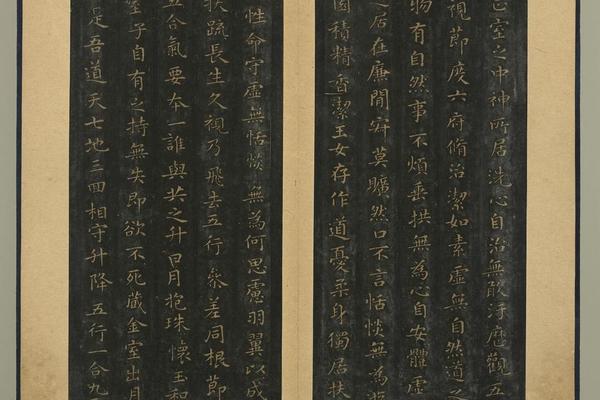 正室之中神所居洗心自治無敢汙歷觀五
視節度六府脩治潔如素虛無自然道之
物有自然事不煩垂拱無為心自安體虛
之居在廉間寂莫曠然口不言恬惔無為
園積精香潔玉女存作道憂柔身獨居扶
性命守虛無恬惔無為何思慮羽翼以成
扶疏長生久視乃飛去五行參差同根節
五合氣要本一誰與共之升日月抱珠懷玉和
室子自有之持無失即欲不死藏金室出月
是吾道天七地三回相守升降五行一合九